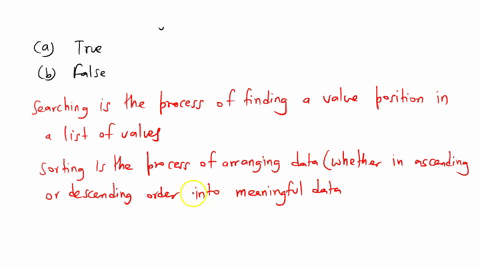 (a) True
(b) False
Searching is the process of finding a value position in
a list of values
Sorting is the process of arranging data (whether in ascending
or descending order into meaningful data